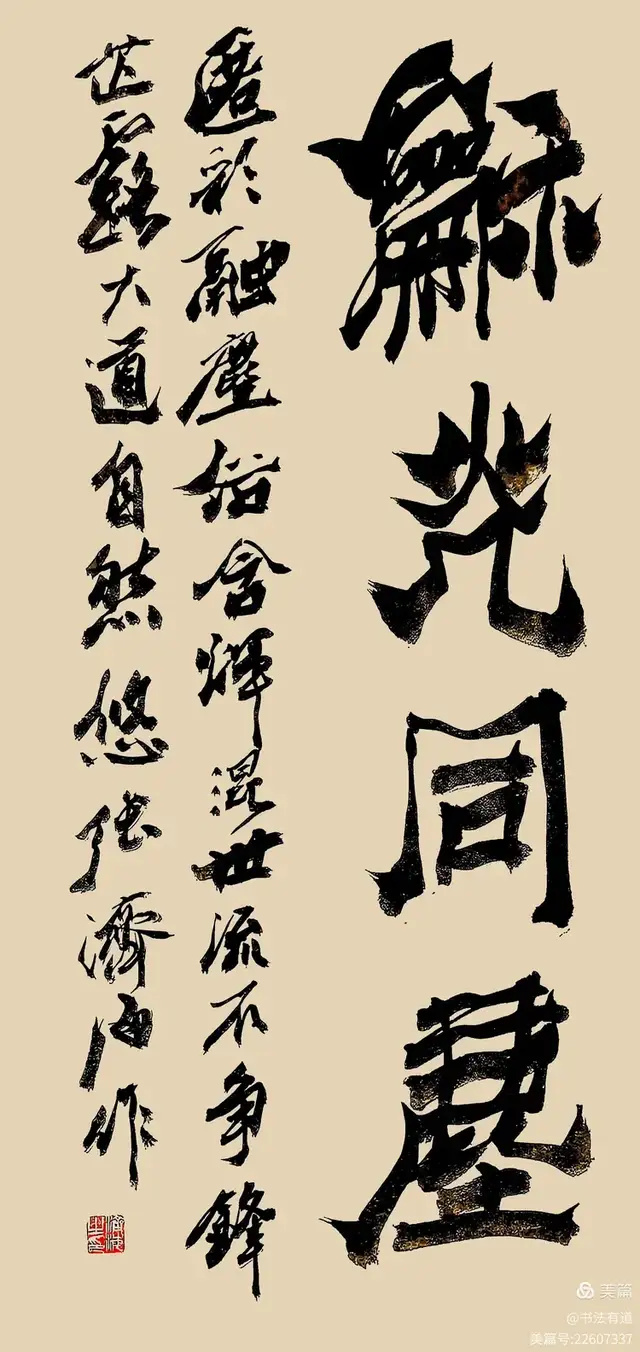 龢光同塵
匿彩融塵俗含輝混世流不争鋒
芒露大道自然悠张濟海作
美篇
@书法有道
美篇号:22607337